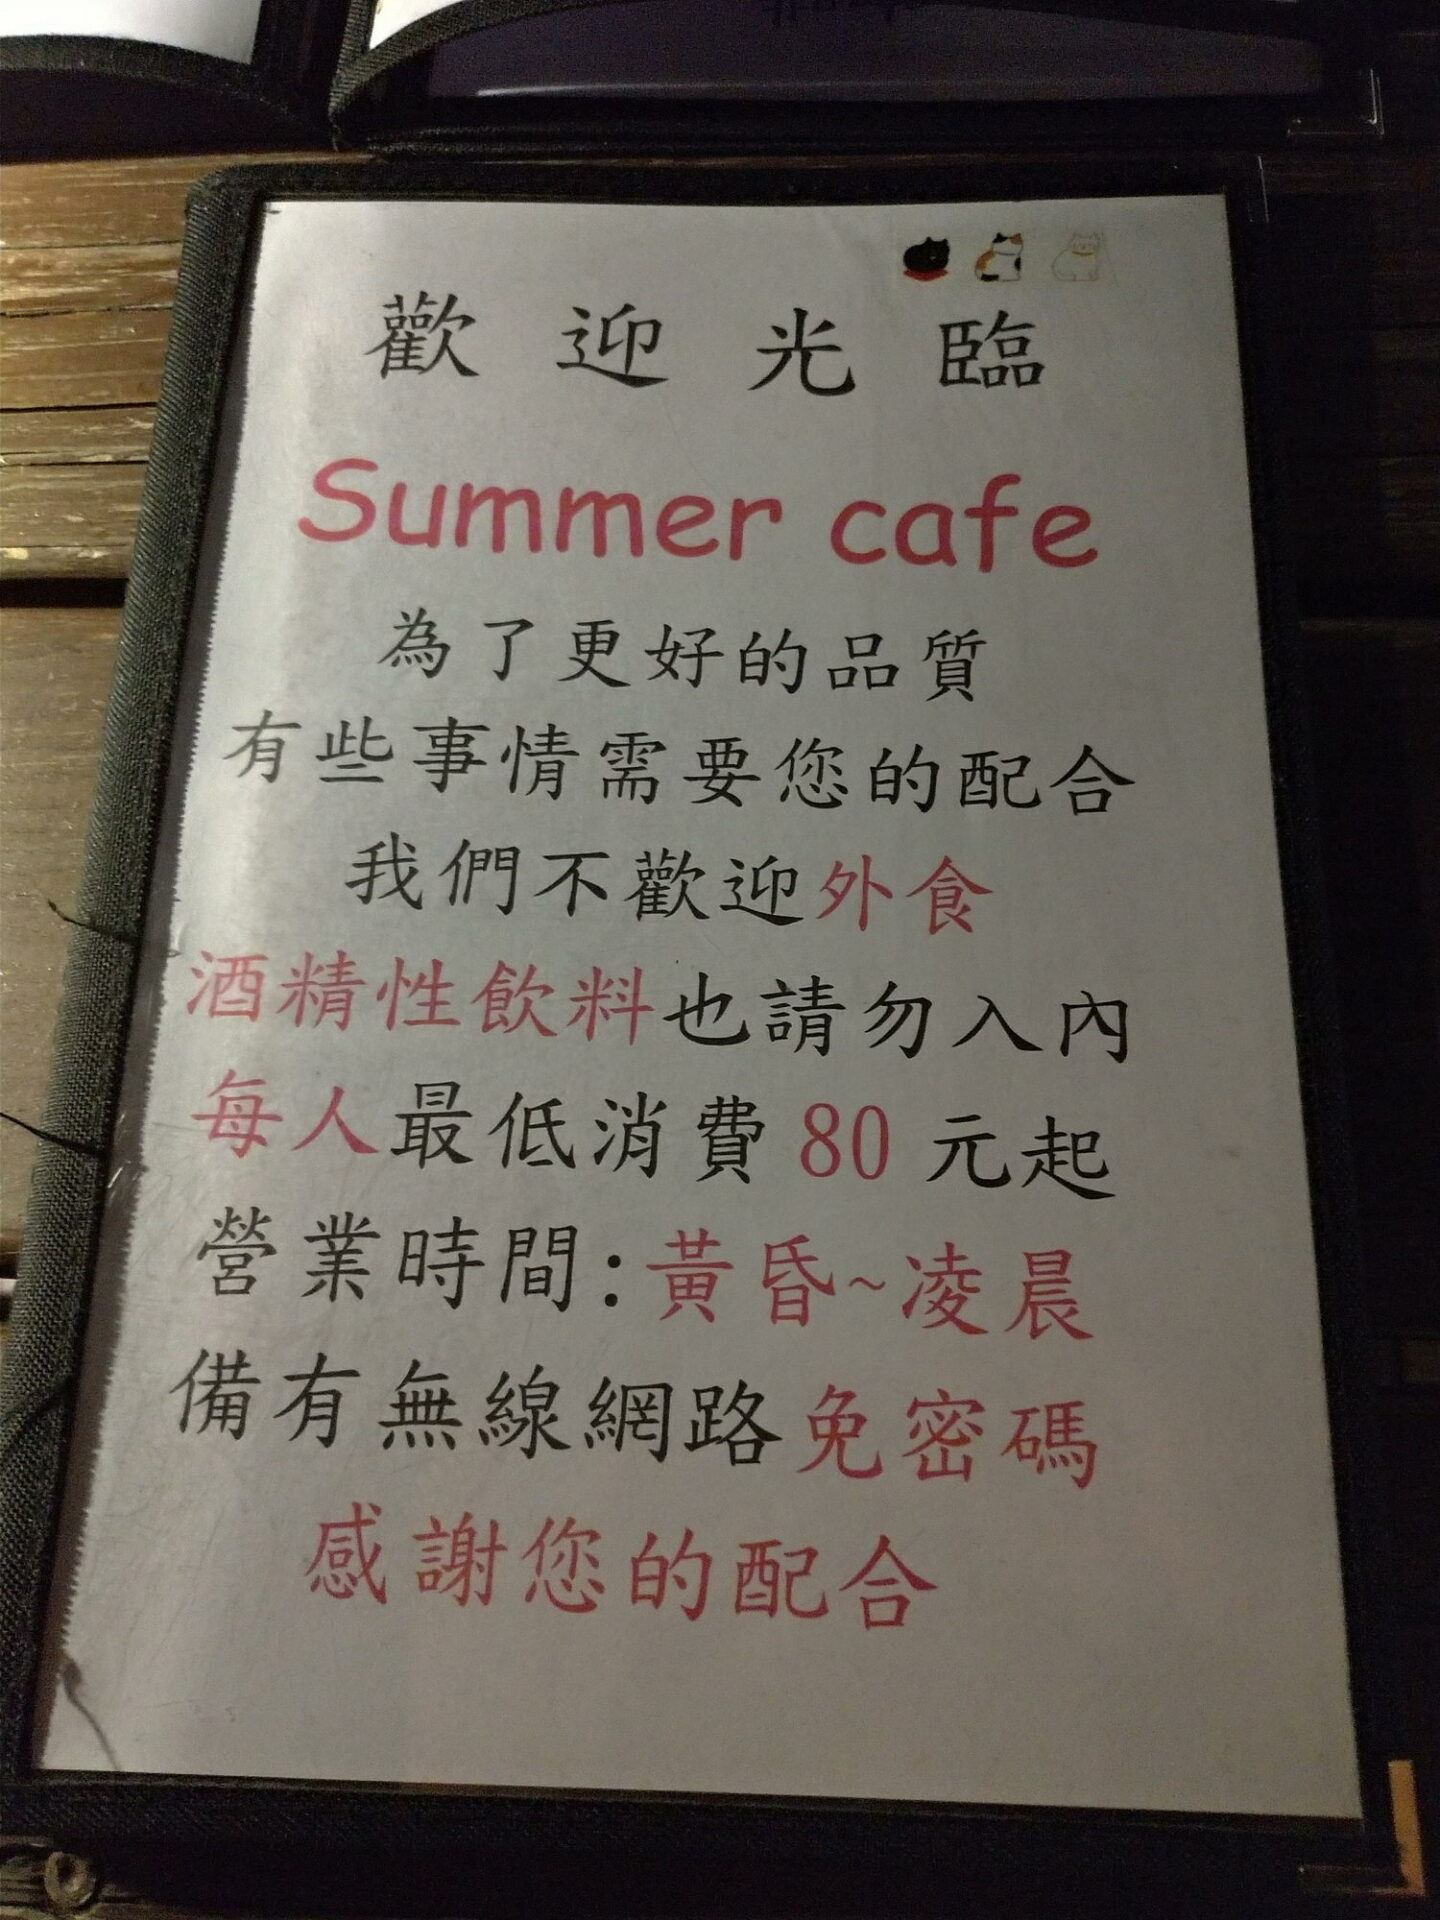 歡迎光臨
Summer cafe
為了更好的品質
有些事情需要您的配合
我們不歡迎外食
酒精性飲料也請勿入內
每人最低消費 80 元起
營業時間:黃昏~凌晨
備有無線網路免密碼
感謝您的配合